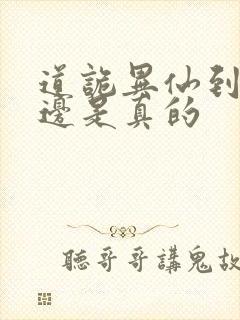 道詭異仙到
邊是真的
聽哥哥講鬼故